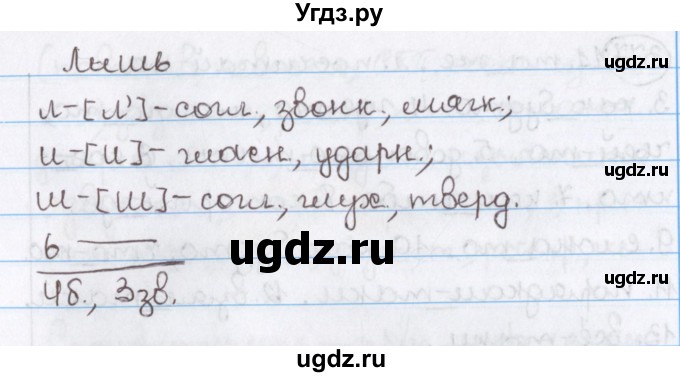 Угдз.ру
Лишь
л-[л']-согл., звонк., мягк.;
и-[и]-гласн., ударн.;
ш-[ш]-согл., глух., тверд.
ь —
4б., 3зв.
ugdz.ru
ugdz.ru
ugdz.ru
ugdz.ru
ugdz.ru
ugdz.ru